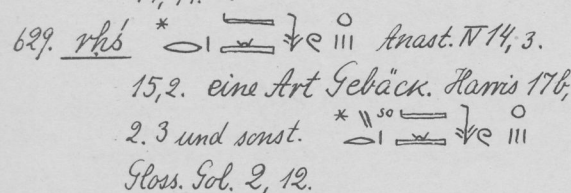 629. rhś * Anast. IV 14, 3.
15,2. eine Art Gebäck. Harris 17b,
2. 3 und sonst. * so
Gloss. Gol. 2, 12.